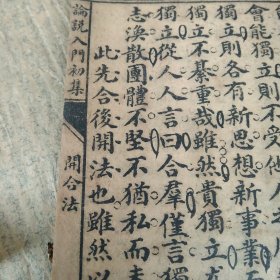 會能獨立則不
獨立則各有新思想新事業
獨立不綦重哉雖然貴獨立
獨立從人人言曰合羣僅言獨
志渙散團體不堅不猶私而
此先合後開法也雖然以
論說入門初集
開合法